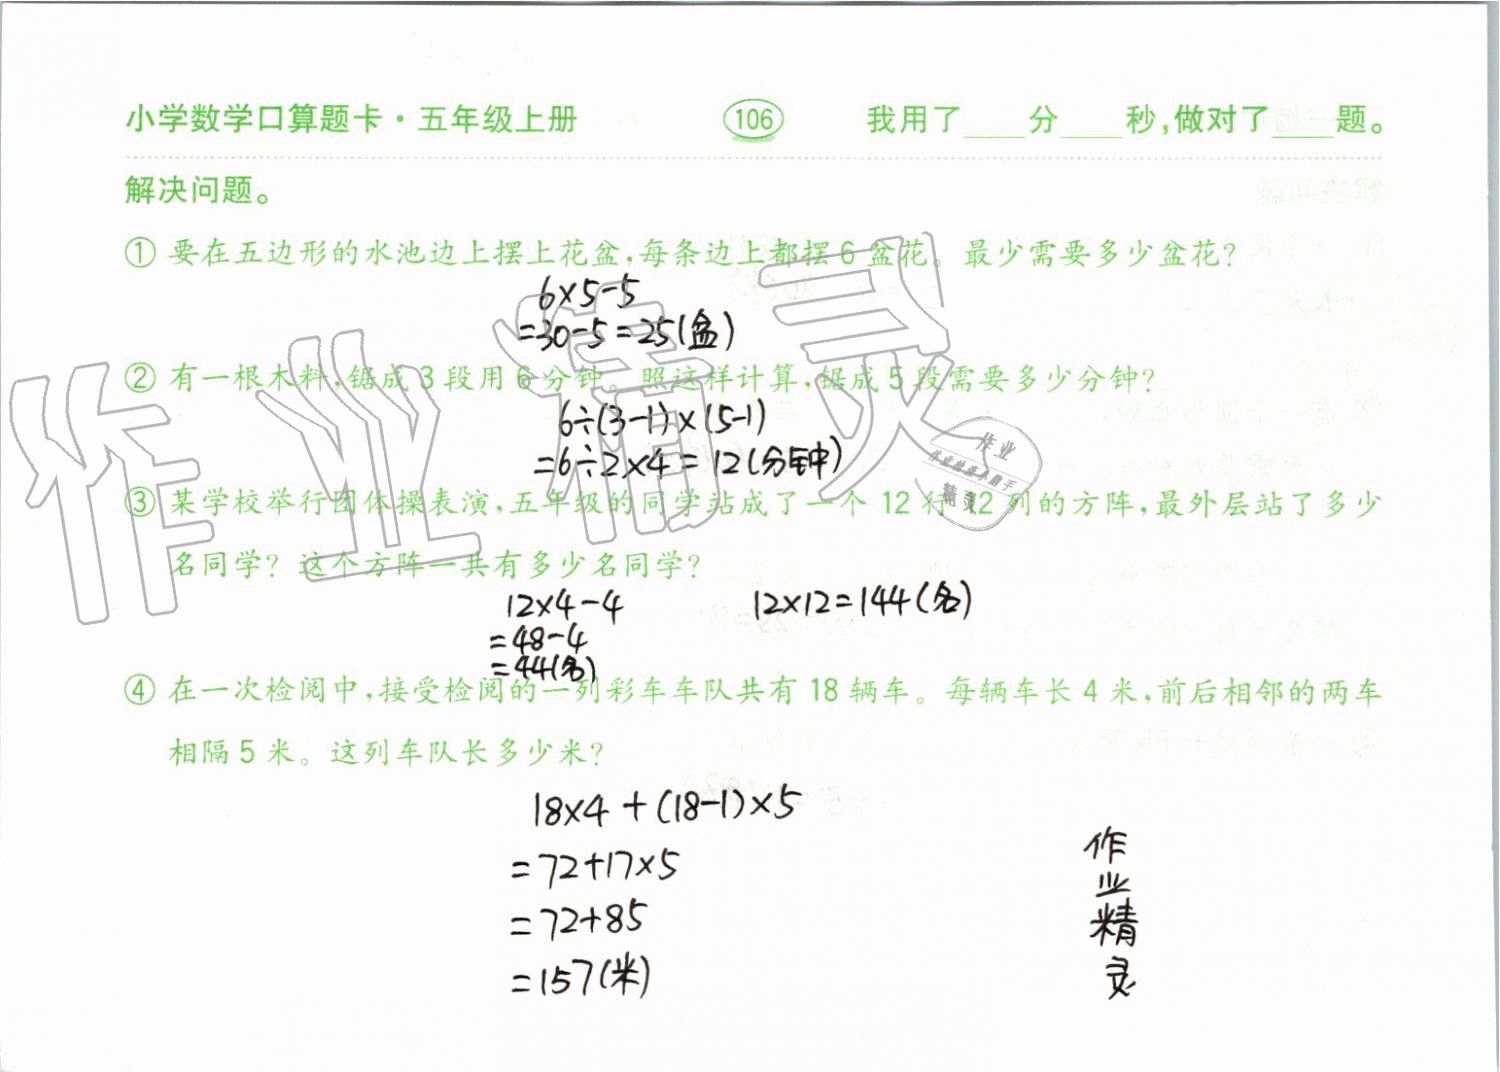 小学数学口算题卡·五年级上册 106 我用了____分____秒,做对了____题。
解决问题。
① 要在五边形的水池边上摆上花盆,每条边上都摆6盆花。最少需要多少盆花?
6×5-5
=30-5=25(盆)
② 有一根木料,锯成3段用6分钟。照这样计算,锯成5段需要多少分钟?
6÷(3-1)×(5-1)
=6÷2×4=12(分钟)
③ 某学校举行团体操表演,五年级的同学站成了一个12行12列的方阵,最外层站了多少
名同学?这个方阵一共有多少名同学?
12×4-4 12×12=144(名)
=48-4
=44(名)
④ 在一次检阅中,接受检阅的一列彩车车队共有18辆车。每辆车长4米,前后相邻的两车
相隔5米。这列车队长多少米?
18×4+(18-1)×5
=72+17×5
=72+85
=157(米)
作
业
精
灵
作业精灵
作业
精灵